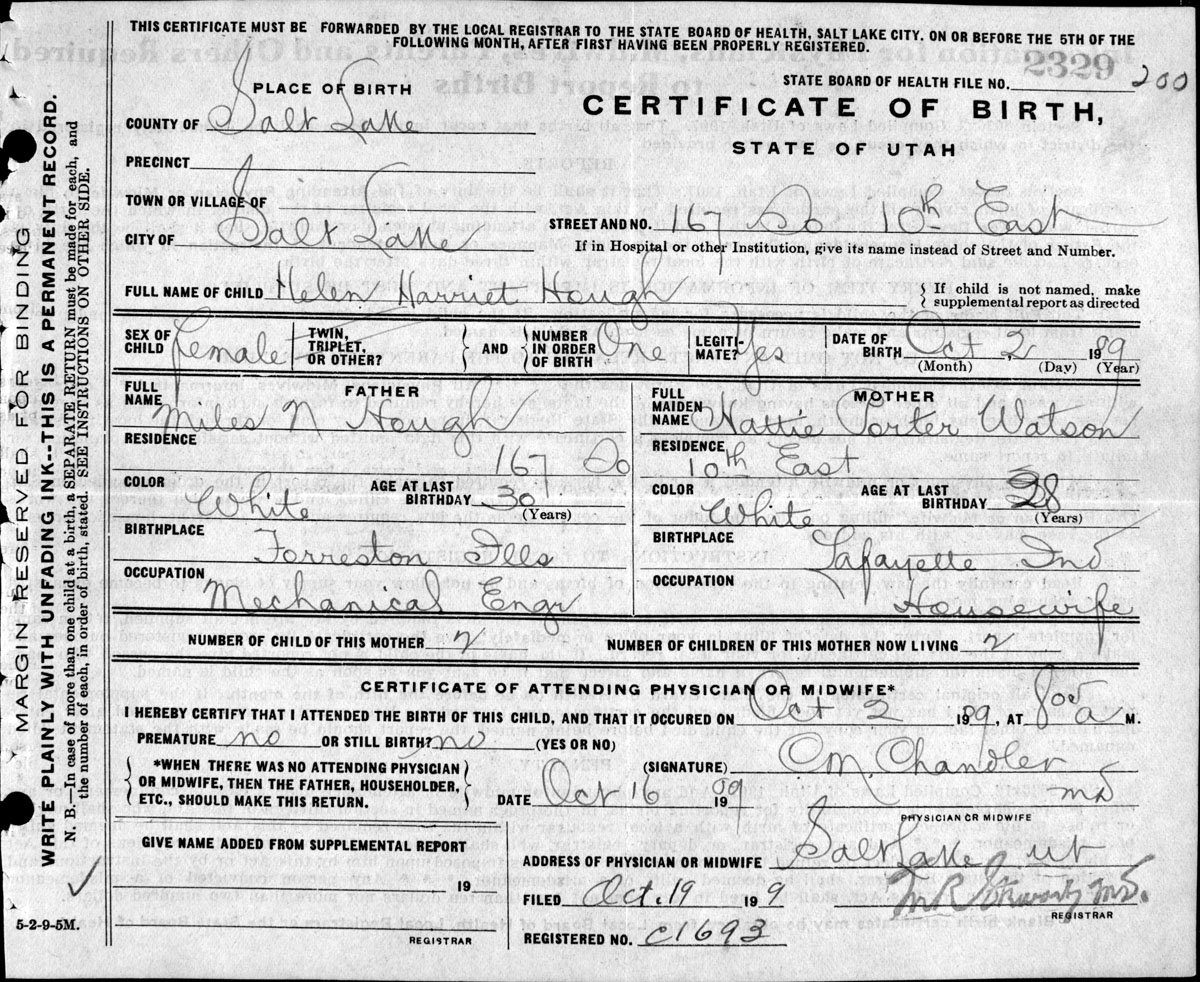 THIS CERTIFICATE MUST BE FORWARDED BY THE LOCAL REGISTRAR TO THE STATE BOARD OF HEALTH, SALT LAKE CITY. ON OR BEFORE THE 5TH OF THE
FOLLOWING MONTH, AFTER FIRST HAVING BEEN PROPERLY REGISTERED.
MARGIN RESERVED FOR BINDING
WRITE PLAINLY WITH UNFADING INK--THIS IS A PERMANENT RECORD.
N. B.—In case of more than one child at a birth, a SEPARATE RETURN must be made for each, and
the number of each, in order of birth, stated. SEE INSTRUCTIONS ON OTHER SIDE.
PLACE OF BIRTH
STATE BOARD OF HEALTH FILE NO. 2329 200
CERTIFICATE OF BIRTH,
STATE OF UTAH
COUNTY OF Salt Lake
PRECINCT
TOWN OR VILLAGE OF
STREET AND NO. 167 So 10th East
CITY OF Salt Lake
If in Hospital or other Institution, give its name instead of Street and Number.
FULL NAME OF CHILD Helen Harriet Hough
{ If child is not named, make
supplemental report as directed
SEX OF CHILD Female
TWIN, TRIPLET, OR OTHER?
{ AND }
NUMBER IN ORDER OF BIRTH One
LEGITI- MATE? Yes
DATE OF BIRTH Oct, 2 1909
(Month) (Day) (Year)
FATHER
FULL NAME Miles N Hough
MOTHER
FULL MAIDEN NAME Hattie Porter Watson
RESIDENCE 167 So
RESIDENCE 10th East
COLOR White AGE AT LAST BIRTHDAY 30 (Years)
COLOR White AGE AT LAST BIRTHDAY 28 (Years)
BIRTHPLACE Forreston Ills
BIRTHPLACE Lafayette Ind
OCCUPATION Mechanical Engr
OCCUPATION Housewife
NUMBER OF CHILD OF THIS MOTHER 2
NUMBER OF CHILDREN OF THIS MOTHER NOW LIVING 2
CERTIFICATE OF ATTENDING PHYSICIAN OR MIDWIFE*
I HEREBY CERTIFY THAT I ATTENDED THE BIRTH OF THIS CHILD, AND THAT IT OCCURED ON Oct 2 1909, AT 800 a M.
PREMATURE no OR STILL BIRTH? no (YES OR NO)
{ *WHEN THERE WAS NO ATTENDING PHYSICIAN
OR MIDWIFE, THEN THE FATHER, HOUSEHOLDER,
ETC., SHOULD MAKE THIS RETURN. }
(SIGNATURE) O.M. Chandler
DATE Oct 16 1909 MD
PHYSICIAN OR MIDWIFE
GIVE NAME ADDED FROM SUPPLEMENTAL REPORT
19
REGISTRAR
ADDRESS OF PHYSICIAN OR MIDWIFE Salt Lake ut
FILED Oct. 19 19 9
M.R. Stewart M.D.
REGISTRAR
5-2-9-5M.
REGISTERED NO. C1693